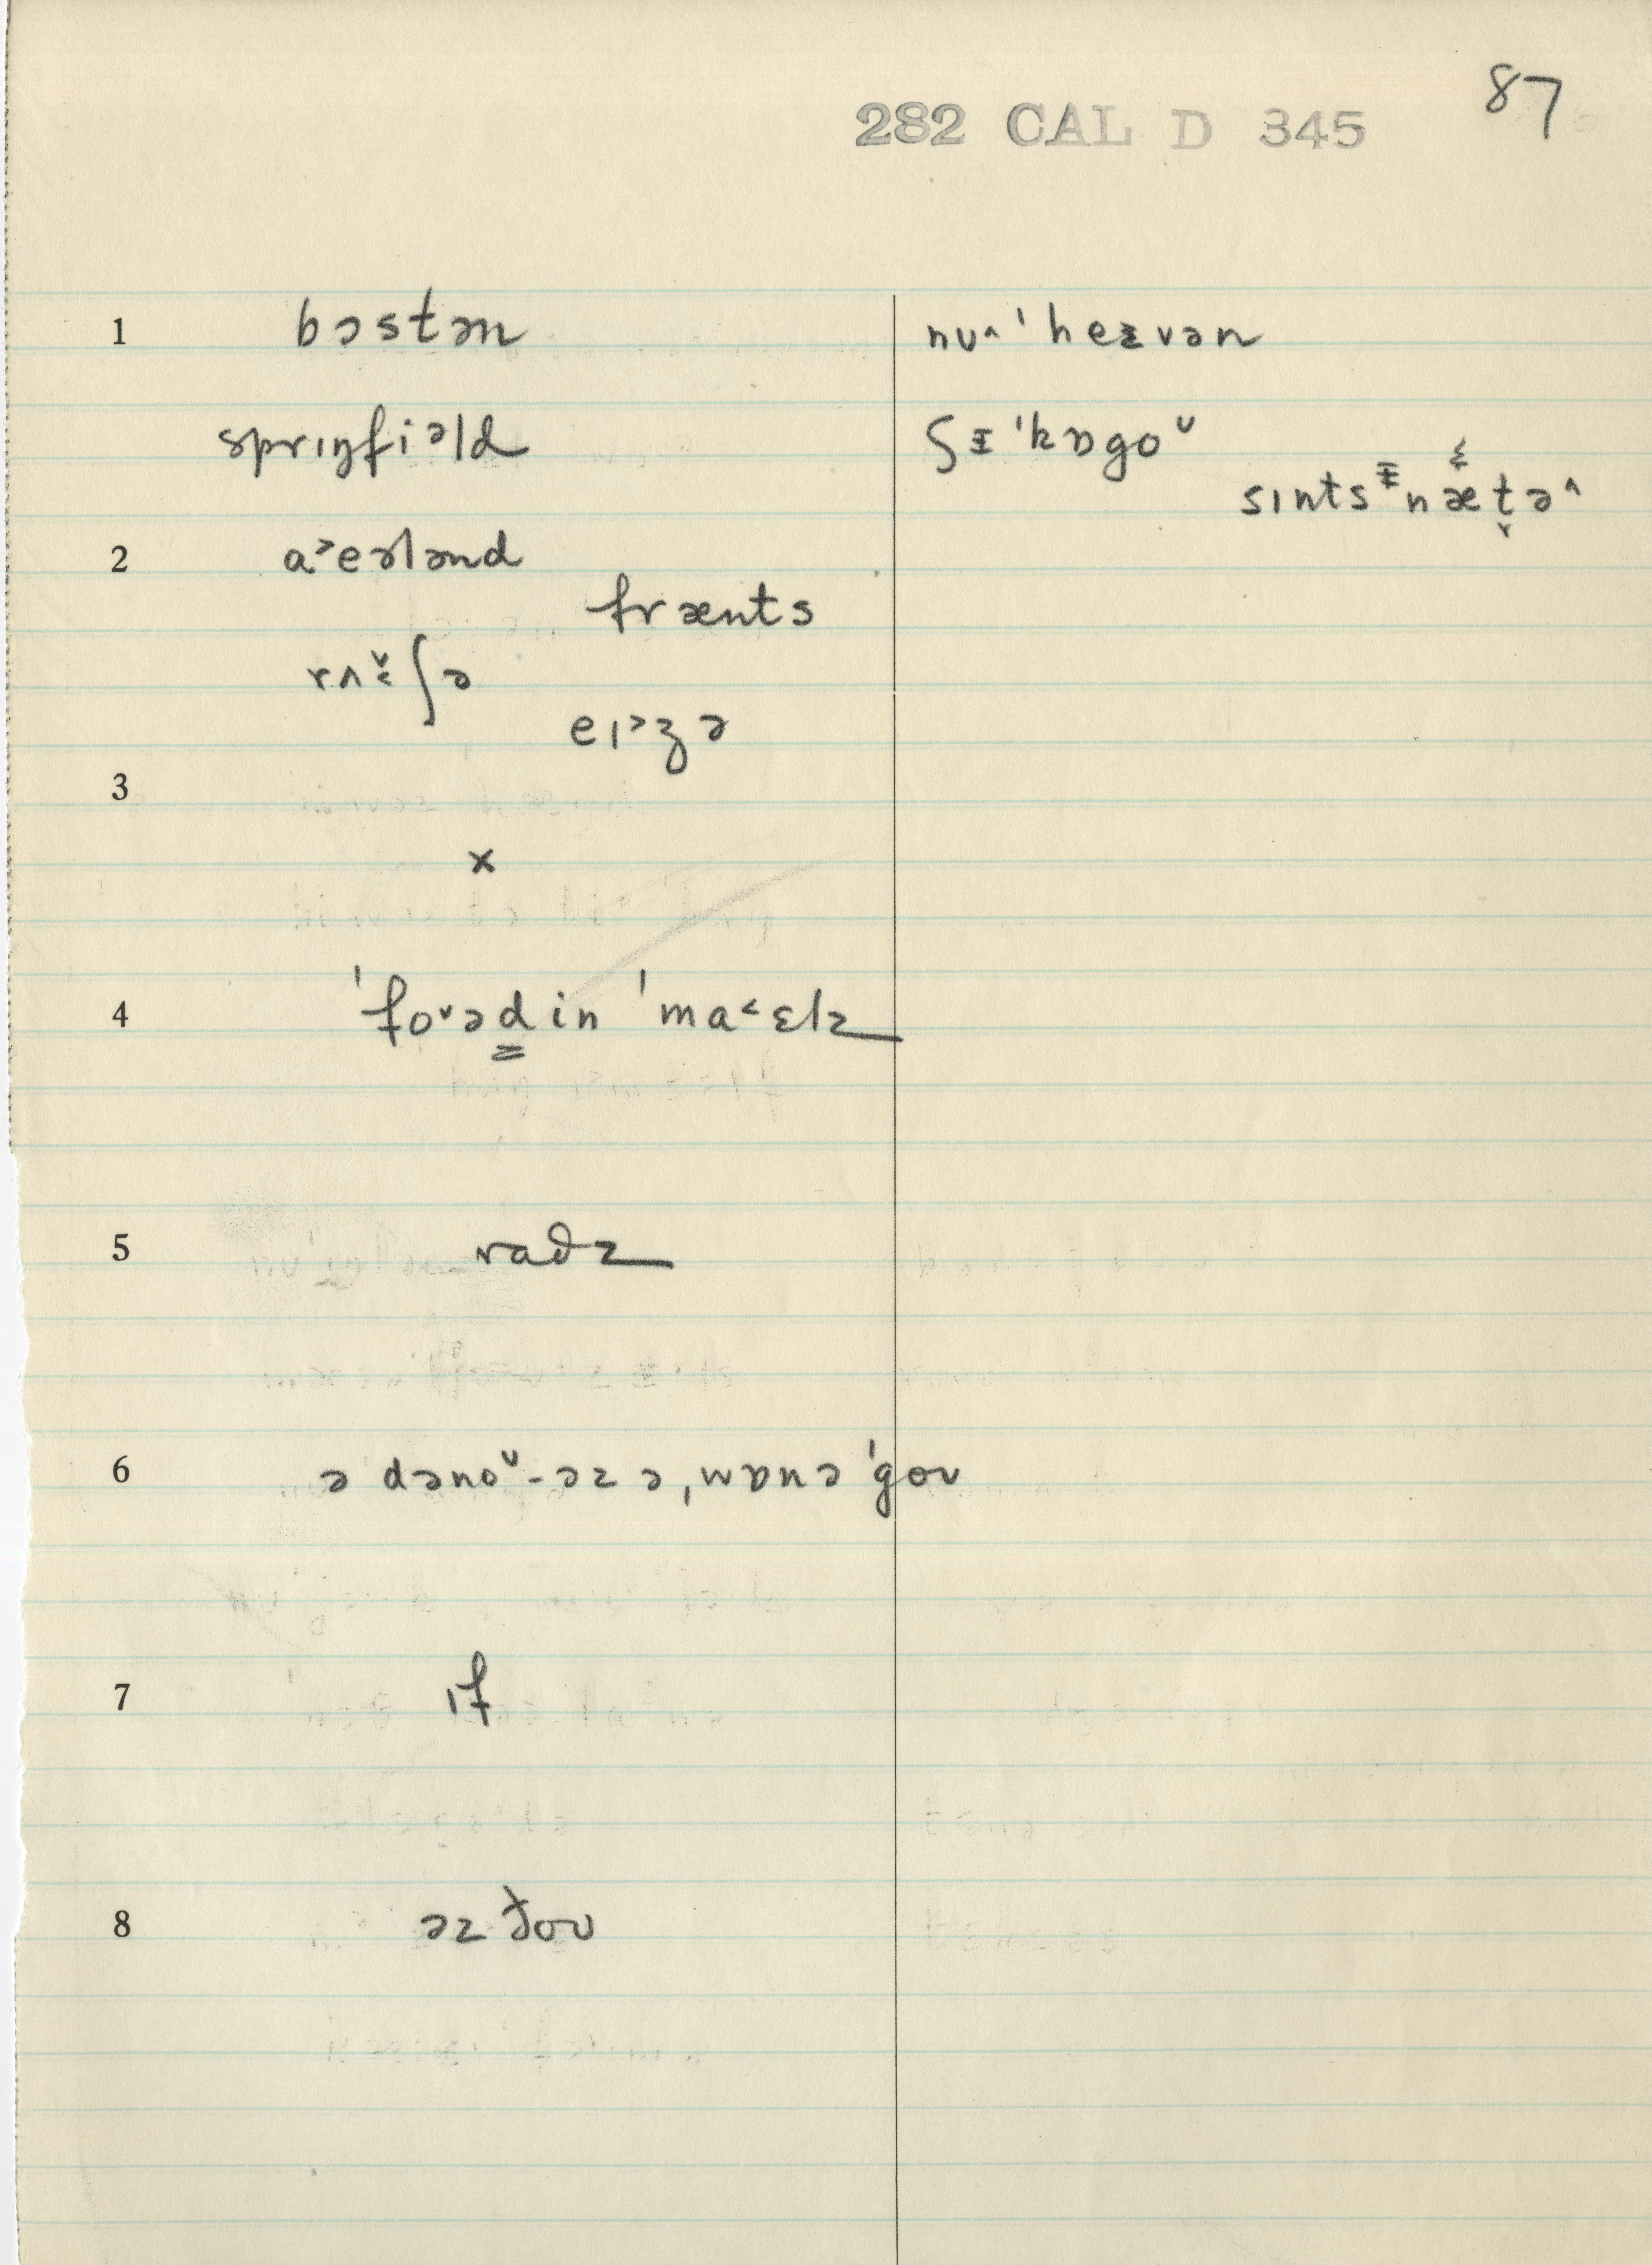 87
282 CAL D 345
1 bɔstən nuʌ ˈheᵻvən
sprɪŋfiᵊld ʃᵻ ˈkɒgoᵘ
sɪntsᵻnæt̬əʌ
2 a˃eɚlənd
frænts
rʌ ʃə
eɪ˃ʒə
3
x
4 ˈfoᵛəd̳in ˈma˂ɛlz
5 raðz
6 ə dənoᵛ-əz ə ˌwɒnə ˈgoʊ
7 ɪf
8 əz ðoʊ